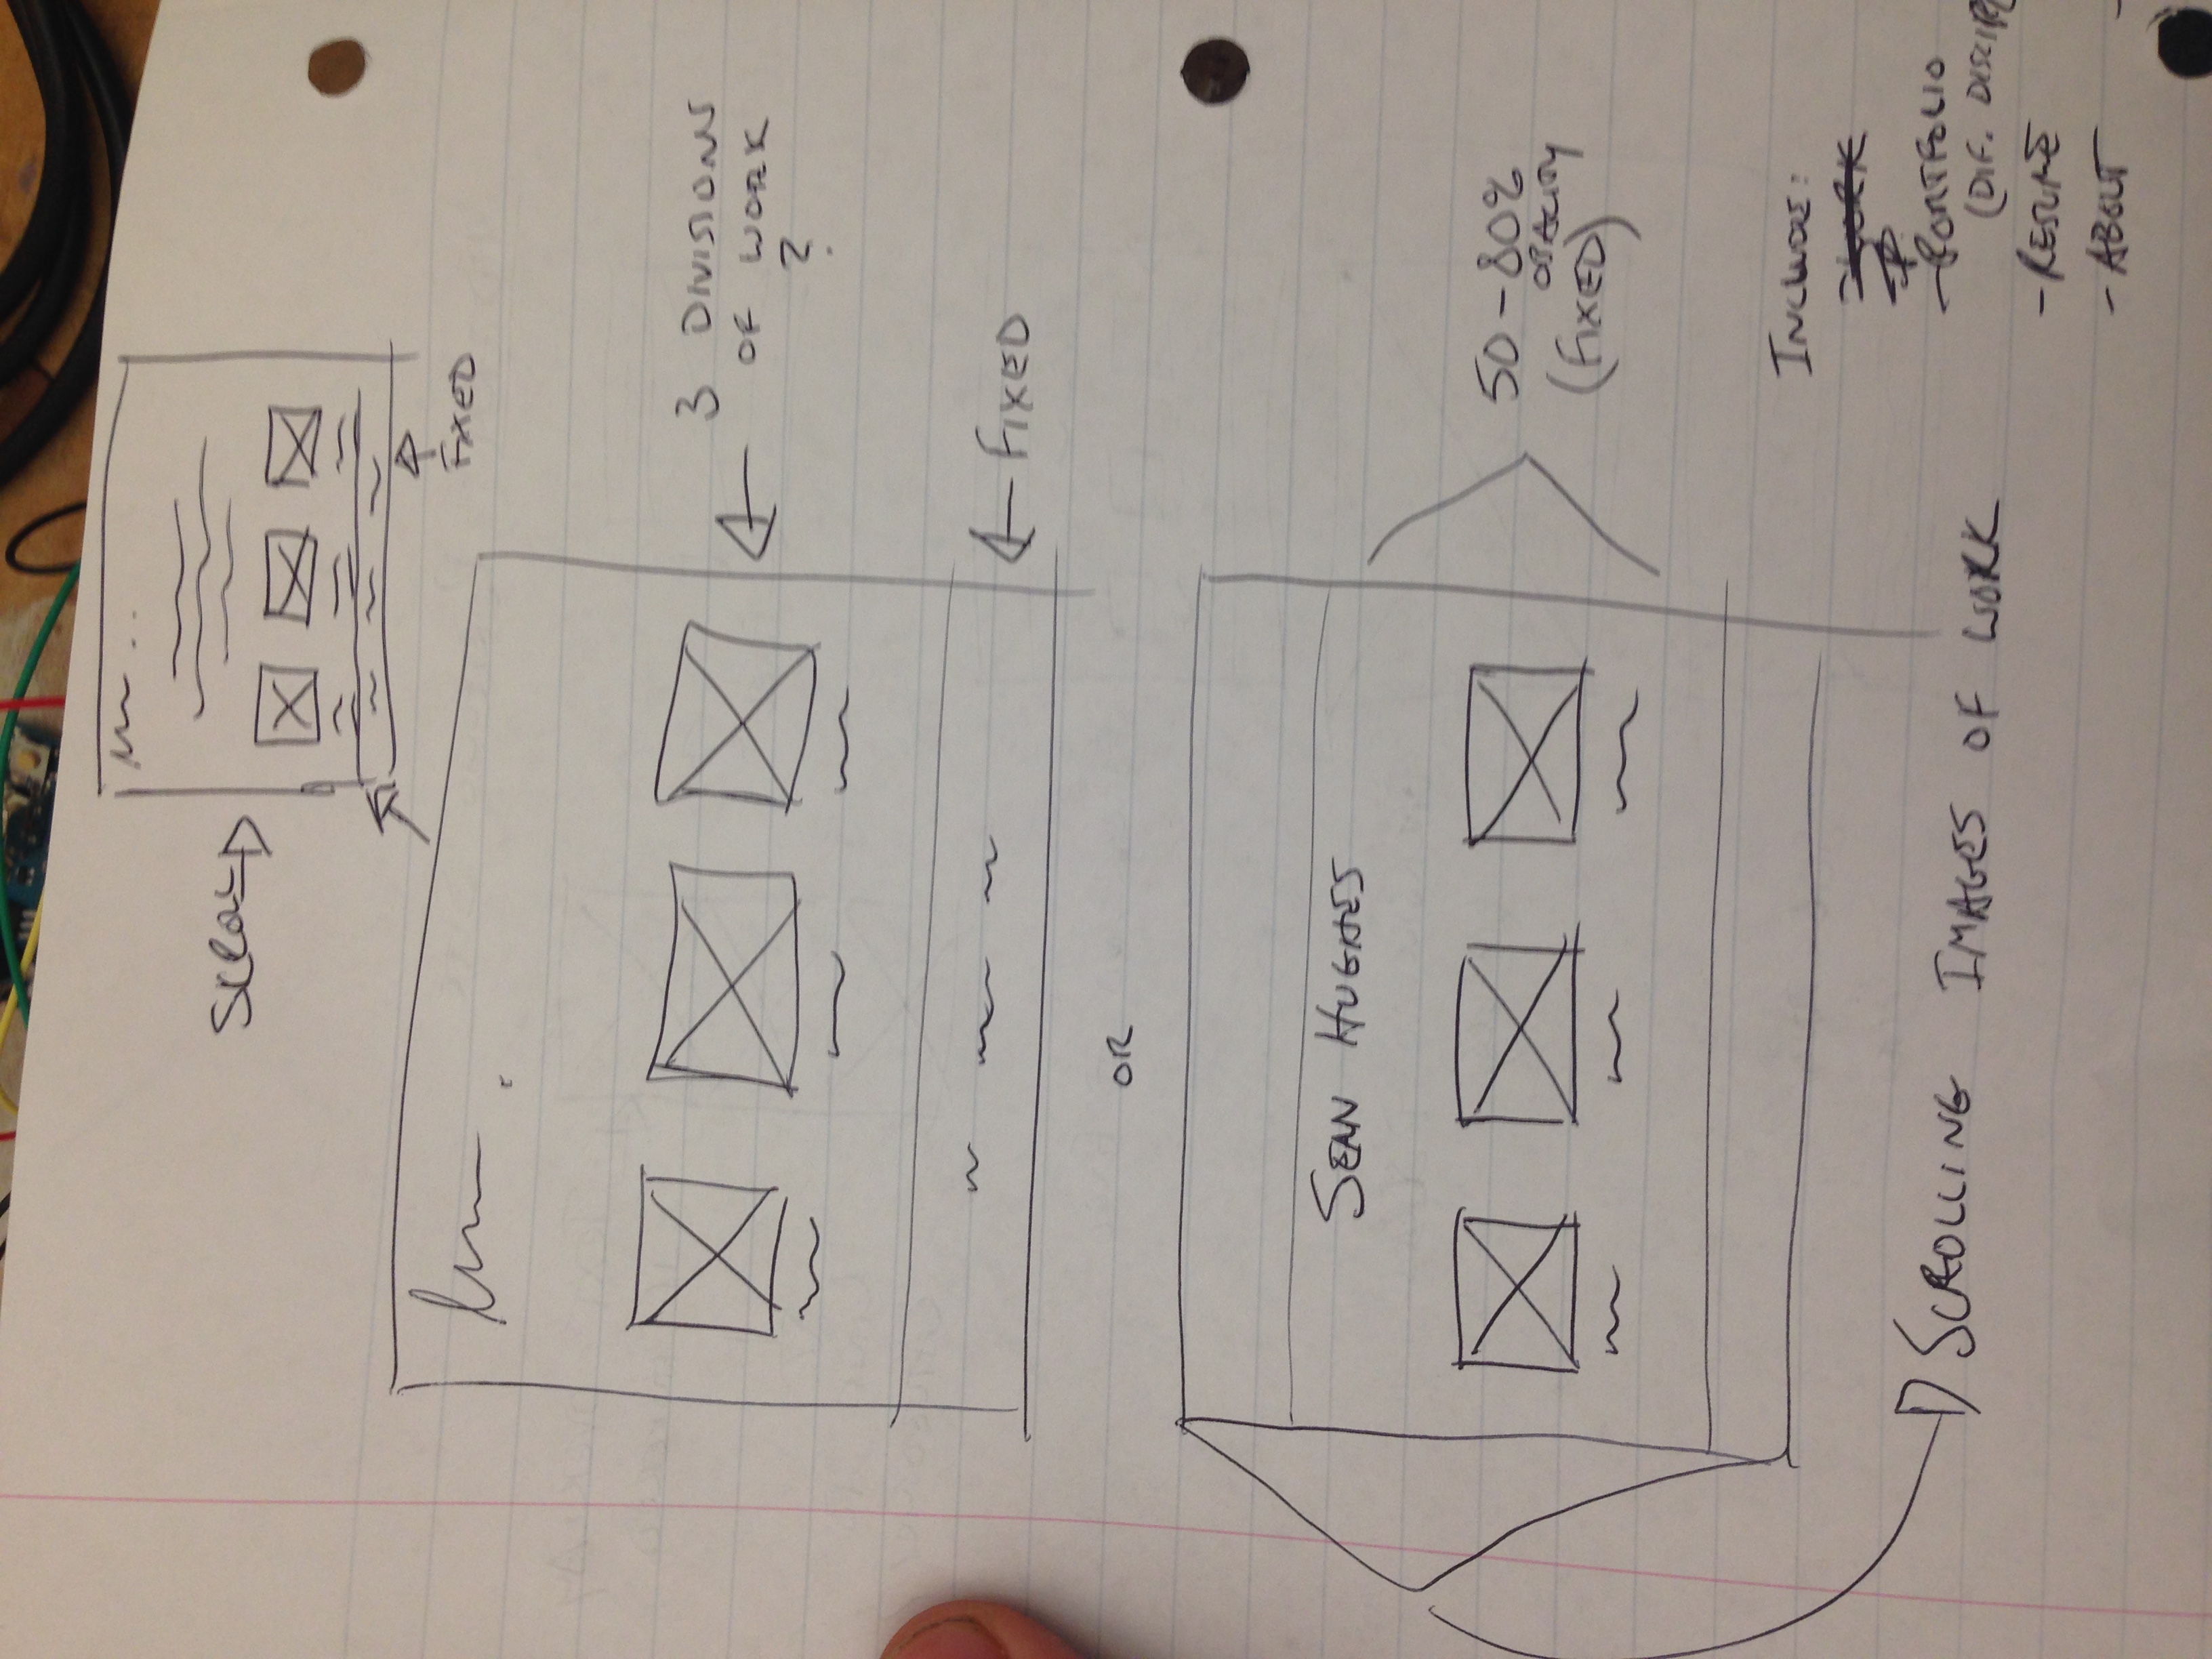 SCROLL
FIXED
3 DIVISIONS
OF WORK
?
FIXED
OR
SEAN HUGHES
50-80%
OPACITY
(FIXED)
SCROLLING IMAGES OF WORK
INCLUDE:
- WORK
- P
- PORTFOLIO
(DIF. DISCIP
- RESUME
- ABOUT